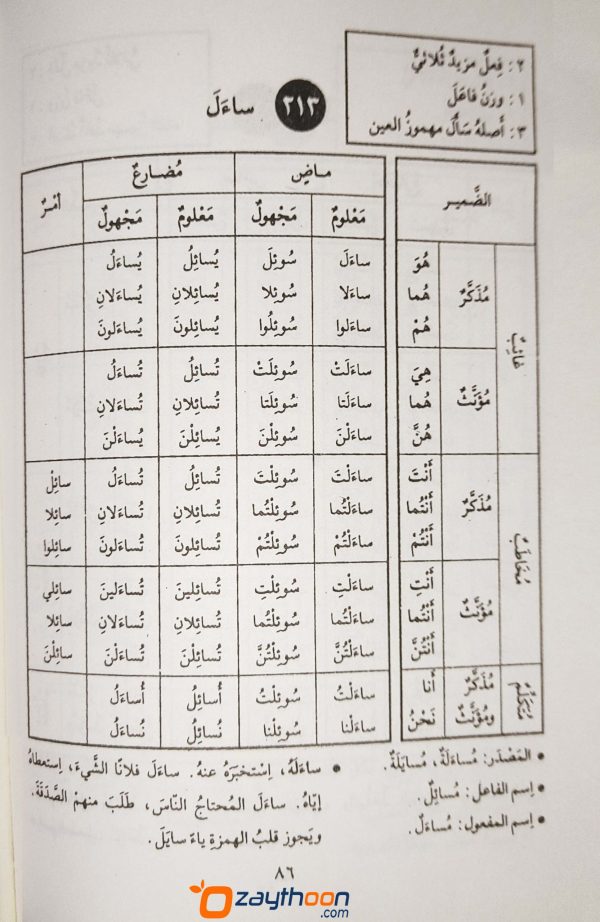 ٢: فِعلٌ مزيدٌ ثُلاثيٌّ
١: وزنُ فاعَلَ
٣: أصلهُ سَأَلَ مهموزُ العين
٢١٣ ساءَلَ
الضَّمير ماضٍ مُضارِعٌ أمْرٌ
مَعْلومٌ مَجْهولٌ مَعْلومٌ مَجْهولٌ
غائِبٌ مُذَكَّرٌ هُوَ ساءَلَ سُوئِلَ يُسائِلُ يُساءَلُ
هُما ساءَلا سُوئِلا يُسائِلانِ يُساءَلانِ
هُمْ ساءَلوا سُوئِلُوا يُسائِلونَ يُساءَلونَ
مُؤَنَّثٌ هِيَ ساءَلَتْ سُوئِلَتْ تُسائِلُ تُساءَلُ
هُما ساءَلَتَا سُوئِلَتَا تُسائِلانِ تُساءَلانِ
هُنَّ ساءَلْنَ سُوئِلْنَ يُسائِلْنَ يُساءَلْنَ
مُخاطَبٌ مُذَكَّرٌ أَنْتَ ساءَلْتَ سُوئِلْتَ تُسائِلُ تُساءَلُ سائِلْ
أَنْتُما ساءَلْتُما سُوئِلْتُما تُسائِلانِ تُساءَلانِ سائِلا
أَنْتُمْ ساءَلْتُمْ سُوئِلْتُمْ تُسائِلونَ تُساءَلونَ سائِلوا
مُؤَنَّثٌ أَنْتِ ساءَلْتِ سُوئِلْتِ تُسائِلينَ تُساءَلينَ سائِلي
أَنْتُما ساءَلْتُما سُوئِلْتُما تُسائِلانِ تُساءَلانِ سائِلا
أَنْتُنَّ ساءَلْتُنَّ سُوئِلْتُنَّ تُسائِلْنَ تُساءَلْنَ سائِلْنَ
مُتَكَلِّمٌ مُذَكَّرٌ أنا ساءَلْتُ سُوئِلْتُ أُسائِلُ أُساءَلُ
ومُؤَنَّثٌ نَحْنُ ساءَلْنا سُوئِلْنا نُسائِلُ نُساءَلُ
• المَصْدَر: مُساءَلَةٌ، مُسايَلَةٌ.
• اِسم الفاعل: مُسائِلٌ.
• اِسم المفعول: مُساءَلٌ.
• ساءَلَهُ، اِسْتَخبَرَهُ عنهُ. ساءَلَ فلانًا الشَّيءَ، اِستعطاهُ
إيّاهُ. ساءَلَ المُحتاجُ النّاسَ، طَلَبَ منهمْ الصَّدَقَةَ.
ويَجوز قلبُ الهمزةِ ياءً سايَلَ.
٨٦
zaythoon
.com